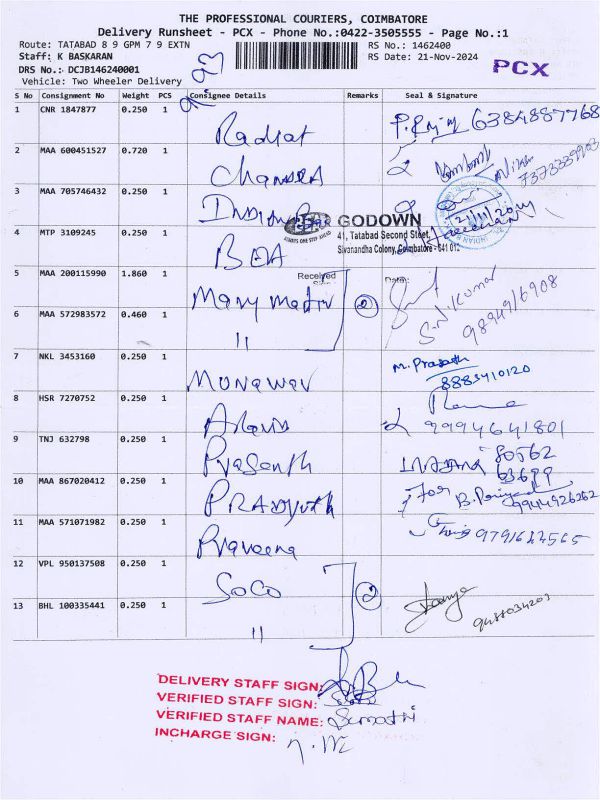 THE PROFESSIONAL COURIERS, COIMBATORE
Delivery Runsheet - PCX - Phone No.:0422-3505555 - Page No.:1
Route: TATABAD 8 9 GPM 7 9 EXTN
RS No.: 1462400
Staff: K BASKARAN
RS Date: 21-Nov-2024
DRS No.: DCJB146240001
PCX
Vehicle: Two Wheeler Delivery
S No Consignment No Weight PCS Consignee Details Remarks Seal & Signature
1 CNR 1847877 0.250 1 Radiat 6384887768
2 MAA 600451527 0.720 1 Chandra
3 MAA 705746432 0.250 1
GODOWN
41, Tatabad Second Street,
Sivanandha Colony, Coimbatore - 641 012
4 MTP 3109245 0.250 1
Received Date:
5 MAA 200115990 1.860 1 S.N. Kumar
6 MAA 572983572 0.460 1 " 98949/6908
7 NKL 3453160 0.250 1 Munawar M. Prasath
8883410120
8 HSR 7270752 0.250 1 9994641801
9 TNJ 632798 0.250 1 Prasanth 80562
63699
10 MAA 867020412 0.250 1 For
9944926262
11 MAA 571071982 0.250 1 Praveena 9791627565
12 VPL 950137508 0.250 1 SoCo 2
13 BHL 100335441 0.250 1 "
DELIVERY STAFF SIGN:
VERIFIED STAFF SIGN:
VERIFIED STAFF NAME:
INCHARGE SIGN: